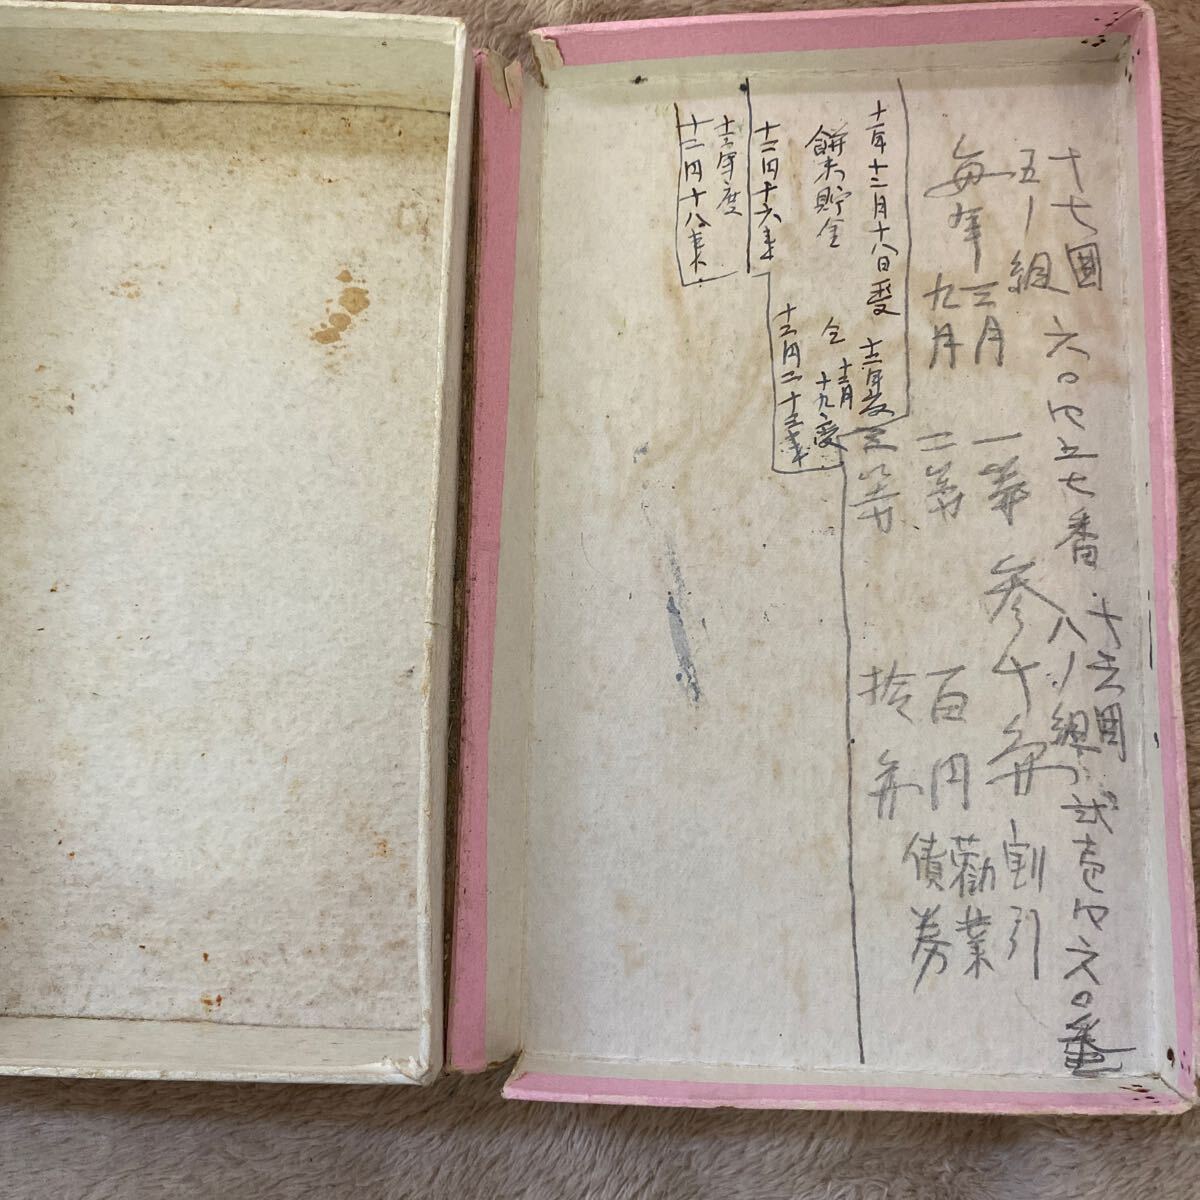 十七回 六〇四五七番 十六回
五ノ組 八ノ組 弐壱四六〇番
毎年 三月
九月
一等 参千円
二等 百円
三等 拾円
割引
勧業
債券
十一年十二月十八日受
餅米貯金
十二年度
仝 十二月
十九日受
十二円二十三銭
十三円十六銭
十三年度
十二円十八銭